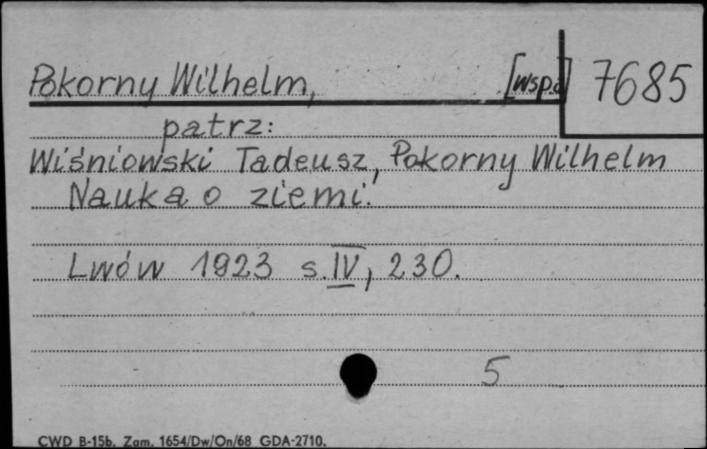 Pokorny Wilhelm, [wsp.a] 7685
patrz:
Wiśniowski Tadeusz, Pokorny Wilhelm
Nauka o ziemi.
Lwów 1923 s. IV, 230.
5
CWD B-15b. Zam. 1654/Dw/On/68 GDA-2710.